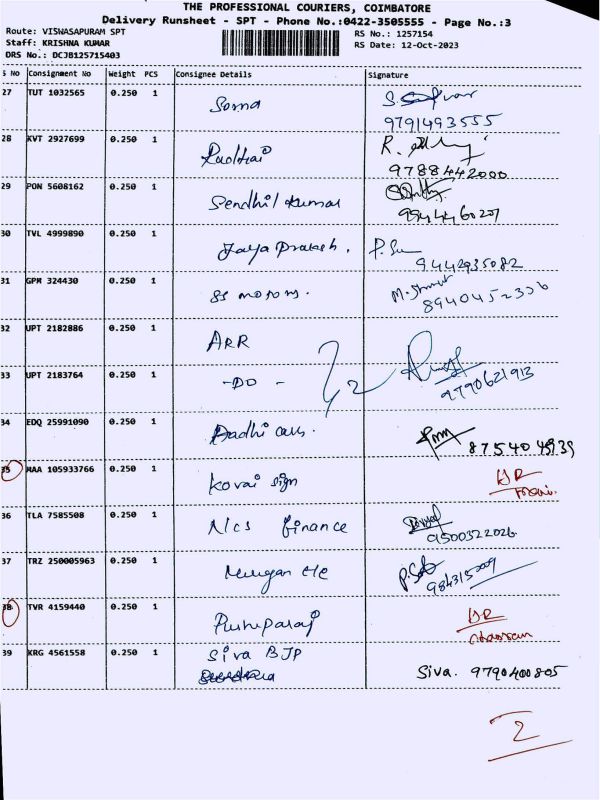 THE PROFESSIONAL COURIERS, COIMBATORE
Delivery Runsheet - SPT - Phone No.:0422-3505555 - Page No.:3
Route: VISWASAPURAM SPT
RS No.: 1257154
Staff: KRISHNA KUMAR
RS Date: 12-Oct-2023
DRS No.: DCJB125715403
S No Consignment No Weight PCS Consignee Details Signature
27 TUT 1032565 0.250 1 Soma
9791493555
28 KVT 2927699 0.250 1 R.
9788442000
29 PON 5608162 0.250 1 Sendhil kumar
9944460207
30 TVL 4999890 0.250 1 Jaya Prakash.
9442935082
31 GPM 324430 0.250 1 SS motors.
8940452336
32 UPT 2182886 0.250 1 ARR
33 UPT 2183764 0.250 1 -DO-
9790621913
34 EDQ 25991090 0.250 1 cars.
35 MAA 105933766 0.250 1 Kovai sign
36 TLA 7585508 0.250 1 finance
9500322026
37 TRZ 250005963 0.250 1 Murugan
38 TVR 4159440 0.250 1 Pushparaj
39 KRG 4561558 0.250 1 Siva BJP
Siva. 9790400805
2